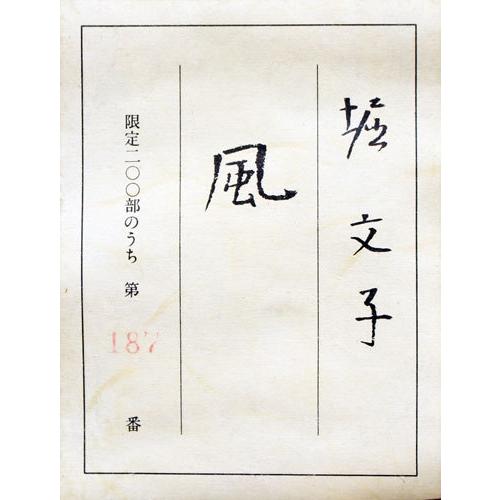 堀文子
風
限定二〇〇部のうち 第 187 番